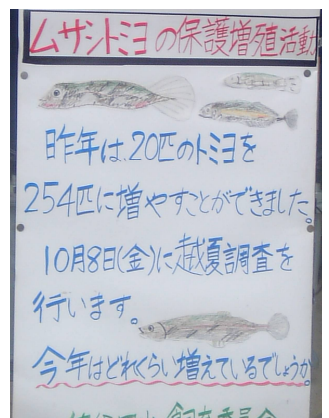 ムサシトミヨの保護増殖活動
昨年は、20匹のトミヨを
254匹に増やすことができました。
10月8日(金)に越夏調査を
行います。
今年はどれくらい増えているでしょうか。
飼育委員会